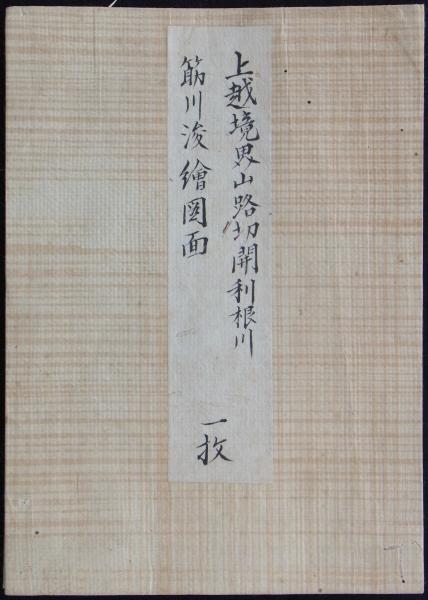 上越境界山路切開利根川
筋川浚繪圖面
一枚